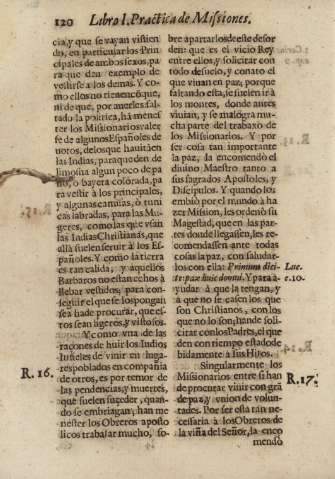 120 Libro I. Practica de Missiones.
cia, y que se vayan vistien
do, en particular los Prin
cipales de ambos sexos, pa
ra que den exemplo de
vestirse a los demas. Y co-
mo ellos no tienen cõ que,
ni de que, por averles fal-
tado la politica, hà menes
ter los Missionarios valer
se de algunos Españoles de
votos, de los que havitã en
las Indias, para que den de
limosna algun poco de pa
ño, ò bayeta colorada, pa
ra vestir à los principales,
y algunas camisas, ò tuni
cas labradas, para las Mu-
geres, como las que vsan
las Indias Christianas, que
allà suelen servir à los Es-
pañoles. Y como la tierra
es tan calida, y aquellos
Barbaros no estan echos à
llebar vestidos, para con-
seguir el que se los pongan
sea hade procurar, que es-
tos sean ligeros, y vistosos.
Y como vna de las
raçones de huir los Indios
Infieles de vivir en luga-
res poblados en compañia
de otros, es por temor de
las pendencias, y muertes,
que suelen suceder, quan-
do se embriagan; han me
nester los Obreros aposto
licos trabajar mucho, so-
R. 16.
bre apartarlos deste desor
den: que es el vicio Rey
entre ellos, y solicitar con
todo desvelo, y conato el
que vivan en paz; porque
faltando esta, se suelen ir à
los montes, donde antes
vivian, y se malogra mu-
cha parte del trabaxo de
los Missionarios. Y por
ser cosa tan importante
la paz, la encomendò el
divino Maestro tanto a
sus sagrados Apostoles, y
Discipulos. Y quando los
embiò por el mundo à ha
zer Mission, les ordenò su
Magestad, que en las par-
tes donde llegassen, les re-
comendassen ante todas
cosas la paz, con saludar-
los con ella: Primum dici-
te: pax huic domui. Y para à-
yudar à que la tengan, y
à que no se casen los que
son Christianos, con los
que no lo son; hande soli-
citar con los Padres, el que
den con tiempo estado de
bidamente à sus Hijos.
Singularmente los
Missionarios entre si han
de procurar vivir con grã
de paz, y vnion de volun-
tades. Por ser esta tan ne-
cessaria à los Obreros de
la viña del Señor, la enco
mendò
Luc.
c. 10.
R. 17.